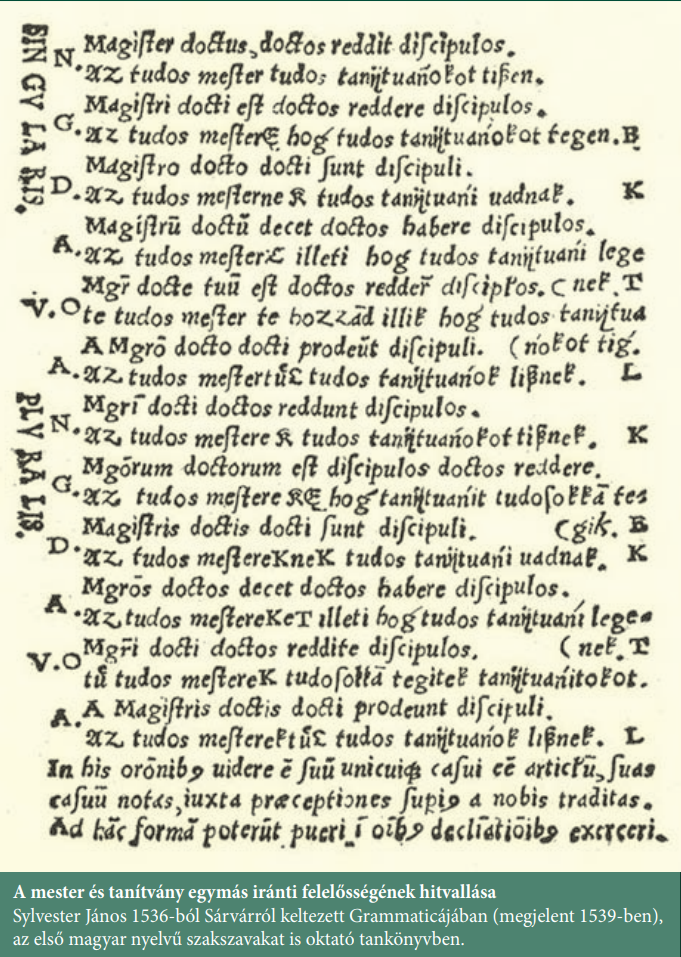 SINGVLARIS.
N. Magiſter doctus, doctos reddit diſcipulos.
AZ tudos meſter tudos tanĳtuańokot tißen.
G. Magiſtri docti eſt doctos reddere diſcipulos.
AZ tudos meſterE hoǵ tudos tanĳtuańokot tegen. E
D. Magiſtro docto docti ſunt diſcipuli.
AZ tudos meſterne K tudos tanĳtuańi uadnak. K
A. Magiſtrū doctū decet doctos habere diſcipulos.
AZ tudos meſter illeti hog tudos tanĳtuańi lege
V. O Mgr̄ docte tuū eſt doctos redder̄ diſcipłos. ( nek. T
te tudos meſter te hozzād illik hoǵ tudos tanĳtua
A. A Mgrō docto docti prodeūt diſcipuli. (ńokot tig.
AZ tudos meſtertűL tudos tanĳtuańok lißnek. L
PLVRALIS.
N. Mgrī docti doctos reddunt diſcipulos.
AZ tudos meſtere K tudos tanĳtuańokot tißnek. K
G. Mgōrum doctorum eſt diſcipulos doctos reddere.
AZ tudos meſtere KE hoǵ tanĳtuańit tudoſokkā te=
D. Magiſtris doctis docti ſunt diſcipuli. (gik. E
AZ tudos meſtereKneK tudos tanĳtuańi uadnak. K
A. Mgrōs doctos decet doctos habere diſcipulos.
AZ tudos meſtereKeT illeti hoǵ tudos tanĳtuańi lege=
V. O Mgr̄i docti doctos reddite diſcipulos. ( nek. T
tű tudos meſtereK tudoſokkā tegitek tanĳtuańitokot.
A. A Magiſtris doctis docti prodeunt diſcipuli.
AZ tudos meſterektűL tudos tanĳtuańok lißnek. L
In his orōnibꝰ uidere ē ſuū unicuiqꝫ caſui eē articłū, ſuas
caſuū notas, iuxta præceptiones ſupiꝰ a nobis traditas.
Ad hāc formā poterūt pueri ī oībꝰ declīatiōibꝰ exerceri.
A mester és tanítvány egymás iránti felelősségének hitvallása
Sylvester János 1536-ból Sárvárról keltezett Grammaticájában (megjelent 1539-ben),
az első magyar nyelvű szakszavakat is oktató tankönyvben.